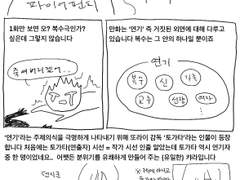 파이어펀치
1화만 보면 오? 복수극인가?
싶은데 그렇지 않습니다
만화는 '연기' 즉 거짓된 외면에 대해 다루고
있습니다 복수는 그 안의 하나일 뿐이죠
연기
복수
신
가족
종교
선악
'연기'라는 주제의식을 극명하게 나타내기 위해 또라이 감독 '토가타'라는 인물이 등장합
니다 처음에는 토가타(연출자) 시선 = 작가 시선 인줄 알았는데 토가타 역시 연기자
중 한 명이었네요.. 어쨌든 분위기를 유쾌하게 만들어 주는 (유일한) 캐라입니다